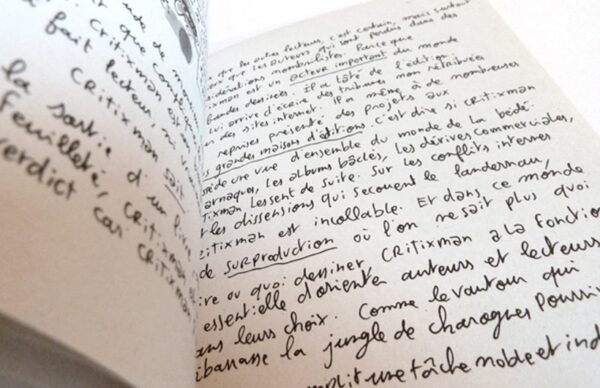 de
que de
complique
fait lecteur. si v
critixman est
critixman sait
la sortie d'un livre
feuilleté, critixman
verdict car critixman
que les autres lecteurs, c'est certain, mais surtout
que les auteurs qui sont perdus dans des
nombrilistes. Parce que
ixman est un acteur important du monde
bandes dessinées. Il a tâté de l'édition.
lui arrive d'écrire des tribunes non rétribuées
des sites internet. Il a même à de nombreuses
reprises présenté des projets aux
s grandes maisons d'éditions c'est dire si critixman
ède une vue d'ensemble du monde de la bédé.
arnaques, les albums bâclés, les dérives commerciales,
tixman les sent de suite. Sur les conflits internes
t les dissensions qui secouent le landernau,
ritixman est incollable. Et dans ce monde
de surproduction où l'on ne sait plus quoi
ire ou quoi dessiner critixman a la fonction
essentielle d'orienter auteurs et lecteurs
ans leurs choix. Comme le vautour qui
ébarrasse la jungle de charognes
mplit une tâche noble et ind